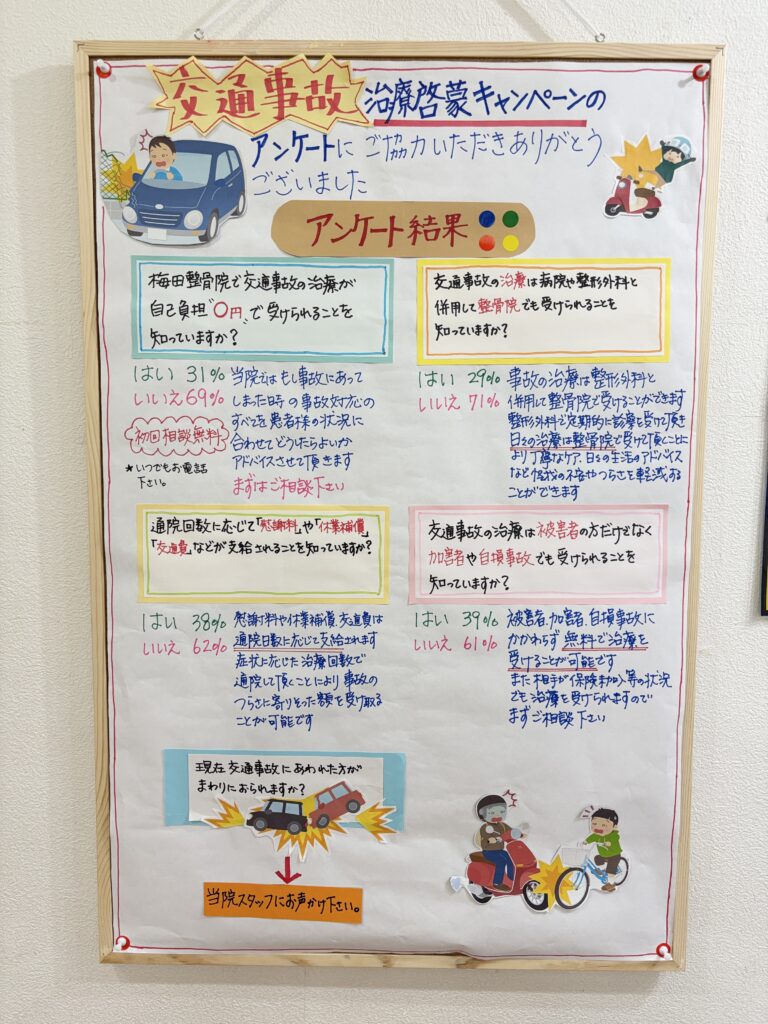 交通事故 治療啓蒙キャンペーンの
アンケートにご協力いただきありがとう
ございました
アンケート結果
梅田整骨院で交通事故の治療が
自己負担"0円"で受けられることを
知っていますか?
はい 31%
いいえ 69%
初回相談無料
*いつでもお電話
下さい。
当院ではもし事故にあって
しまった時の事故対応の
すべてを患者様の状況に
合わせてどうしたらよいか
アドバイスさせて頂きます
まずはご相談下さい
交通事故の治療は病院や整形外科と
併用して整骨院でも受けられることを
知っていますか?
はい 29%
いいえ 71%
事故の治療は整形外科と
併用して整骨院で受けることができます
整形外科で定期的に診察を受けて頂き
日々の治療は整骨院で受けて頂くことに
より丁寧なケア、日々の生活のアドバイス
など怪我の不安やつらさを軽減する
ことができます
通院回数に応じて「慰謝料」や「休業補償」
「交通費」などが支給されることを知っていますか?
はい 38%
いいえ 62%
慰謝料や休業補償、交通費は
通院日数に応じて支給されます
症状に応じた治療回数で
通院して頂くことにより事故の
つらさに寄りそった額を受け取る
ことが可能です
交通事故の治療は被害者の方だけでなく
加害者や自損事故でも受けられることを
知っていますか?
はい 39%
いいえ 61%
被害者、加害者、自損事故に
かかわらず無料で治療を
受けることが可能です
また相手が保険未加入等の状況
でも治療を受けられますので
まずご相談下さい
現在交通事故にあわれた方が
まわりにおられますか?
当院スタッフにお声かけ下さい。